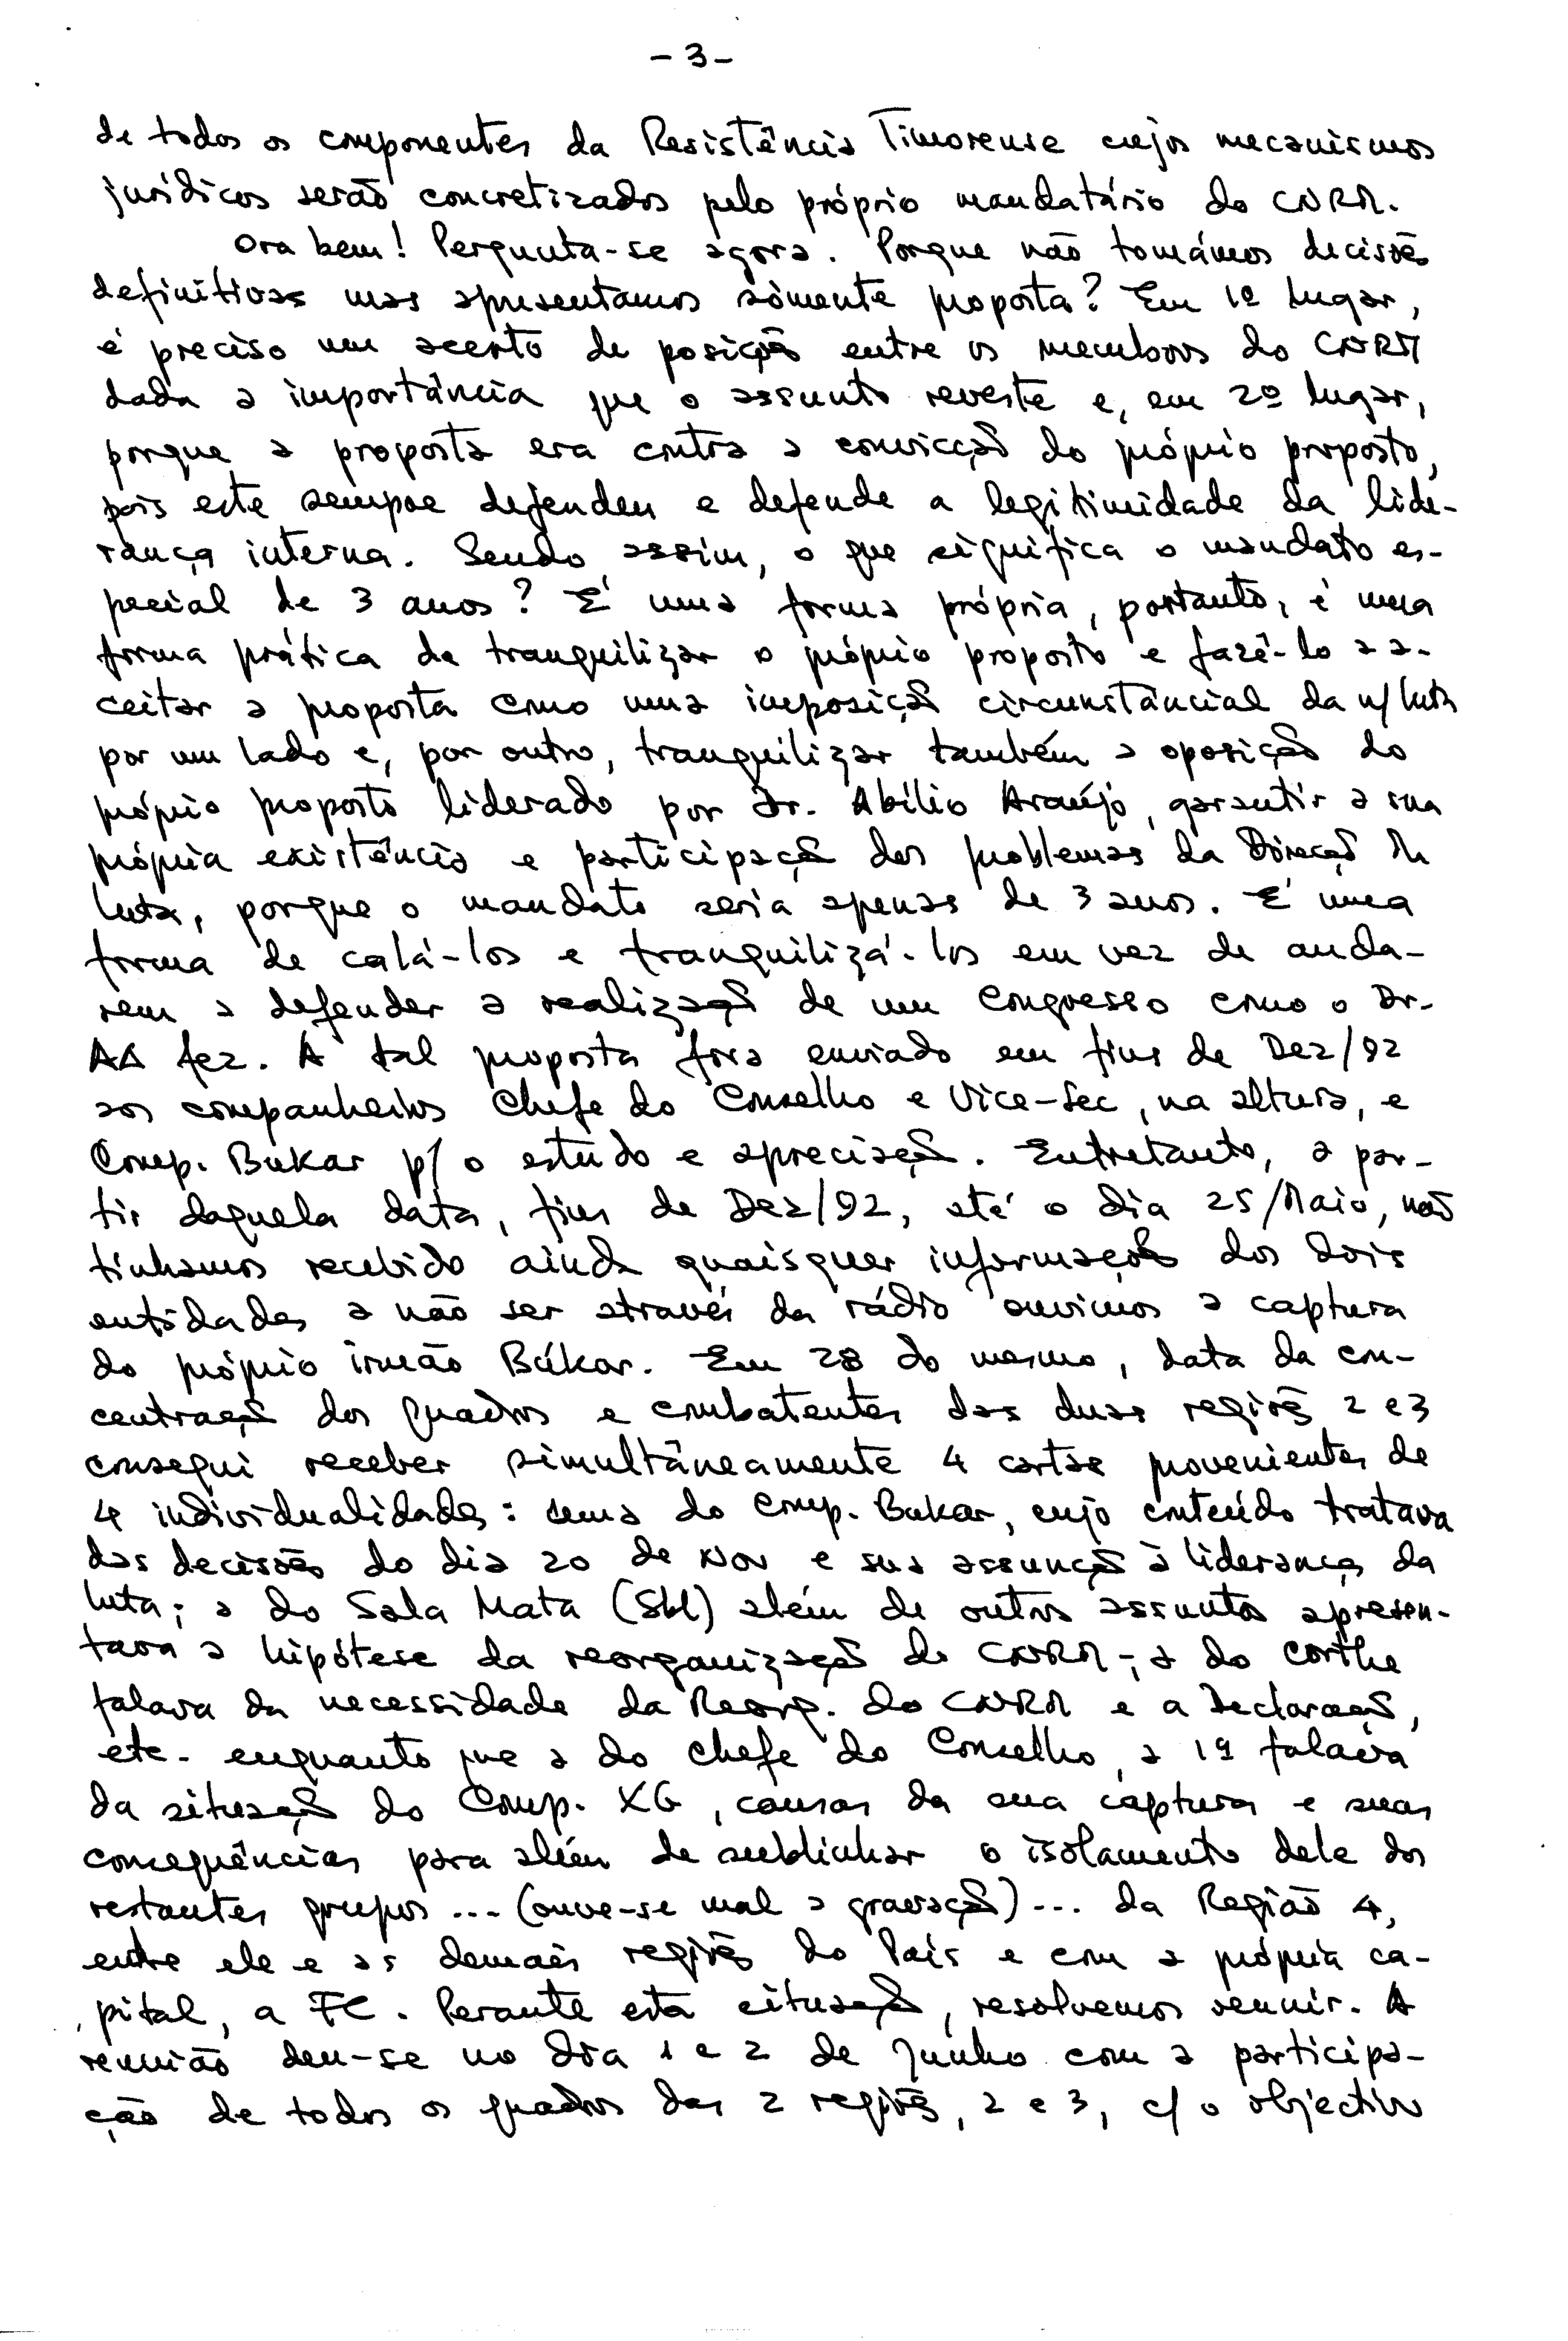 - 3 -
de todos os componentes da Resistência Timorense cujos mecanismos
jurídicos serão concretizados pelo próprio mandatário do CNRM.
Ora bem! Pergunta-se agora. Porque não tomámos decisões
definitivas mas apresentamos sòmente proposta? Em 1º lugar,
é preciso um acerto de posição entre os membros do CNRM
dada a importância que o assunto reveste e, em 2º lugar,
porque a proposta era contra a convicção do próprio proposto,
pois este sempre defendeu e defende a legitimidade da lide-
rança interna. Sendo assim, o que significa o mandato es-
pecial de 3 anos? É uma forma própria, portanto, é uma
forma prática de tranquilizar o próprio proposto e fazê-lo a a-
ceitar a proposta como uma imposição circunstâncial da n/ luta
por um lado e, por outro, tranquilizar também a oposição do
próprio proposto liderado por Dr. Abílio Araújo, garantir a sua
própria existência e participação dos problemas da Direcção da
luta, porque o mandato seria apenas de 3 anos. É uma
forma de calá-los e tranquilizá-los em vez de anda-
rem a defender a realização de um Congresso como o Dr.
AA fez. A tal proposta fora enviado em fins de Dez/92
aos companheiros Chefe do Conselho e Vice-Sec, na altura, e
Comp. Bukar p/ o estudo e apreciação. Entretanto, a par-
tir daquela data, fins de Dez/92, até o dia 25/Maio, não
tinhamos recebido ainda quaisquer informações dos dois
entidades a não ser através da rádio ouvimos a captura
do próprio irmão Búkar. Em 28 do mesmo, data da con-
centração dos quadros e combatentes das duas regiões 2 e 3
consegui receber simultâneamente 4 cartas provenientes de
4 individualidades: uma do Comp. Bukar, cujo conteúdo tratava
das decisões do dia 20 de Nov e sua assunção à liderança da
luta; a do Sala Mata (Sbl) além de outros assuntos apresen-
tava a hipótese da reorganização do CNRM-; a do Corthe
falava da necessidade da Reorg. do CNRM e a Declaração,
etc. enquanto que a do chefe do Conselho, a 1ª falava
da situação do Comp. XG, causas da sua captura e suas
consequências para além de sublinhar o isolamento dele dos
restantes grupos ... (ouve-se mal a gravação) ... da Região 4,
entre ele e as demais regiões do País e com a própria ca-
pital, a FC. Perante esta situação, resolvemos reunir. A
reunião deu-se no dia 1 e 2 de Junho com a participa-
ção de todos os quadros das 2 regiões, 2 e 3, c/ o objectivo